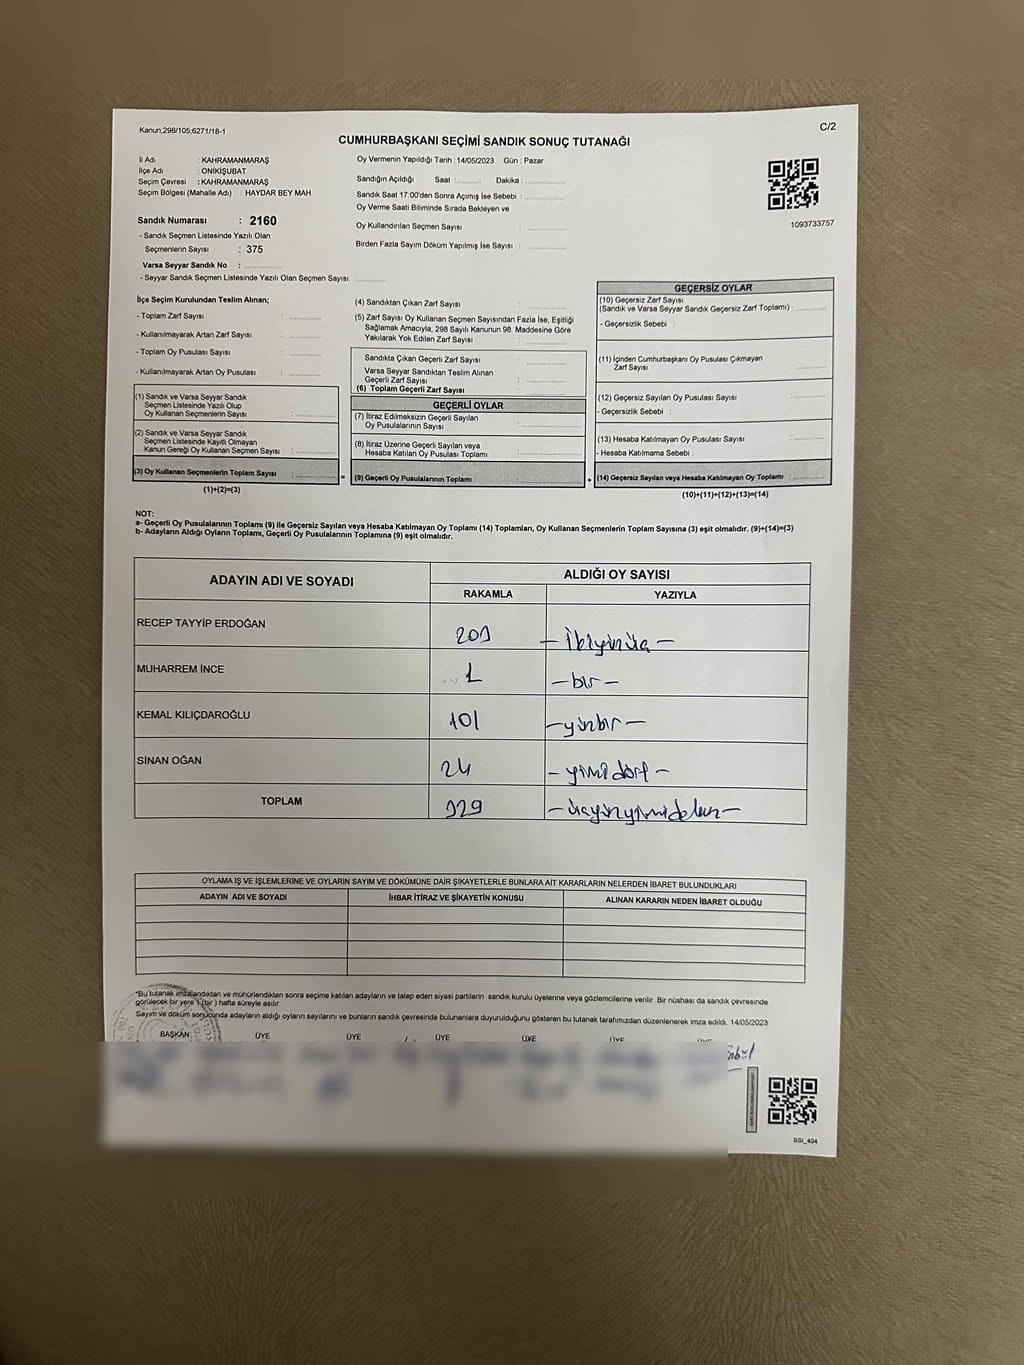 Kanun,298/105,6271/18-1
C/2
CUMHURBAŞKANI SEÇİMİ SANDIK SONUÇ TUTANAĞI
İl Adı : KAHRAMANMARAŞ
İlçe Adı : ONİKİŞUBAT
Seçim Çevresi : KAHRAMANMARAŞ
Seçim Bölgesi (Mahalle Adı) : HAYDAR BEY MAH.
Sandık Numarası : 2160
- Sandık Seçmen Listesinde Yazılı Olan
Seçmenlerin Sayısı : 375
Varsa Seyyar Sandık No :
- Seyyar Sandık Seçmen Listesinde Yazılı Olan Seçmen Sayısı:
Oy Vermenin Yapıldığı Tarih : 14/05/2023 Gün : Pazar
Sandığın Açıldığı Saat : Dakika :
Sandık Saat 17:00'den Sonra Açımış İse Sebebi :
Oy Verme Saati Bitiminde Sırada Bekleyen ve
Oy Kullandırılan Seçmen Sayısı :
Birden Fazla Sayım Döküm Yapılmış İse Sayısı :
1093733757
İlçe Seçim Kurulundan Teslim Alınan;
- Toplam Zarf Sayısı :
- Kullanılmayarak Artan Zarf Sayısı :
- Toplam Oy Pusulası Sayısı :
- Kullanılmayarak Artan Oy Pusulası :
(1) Sandık ve Varsa Seyyar Sandık
Seçmen Listesinde Yazılı Olup
Oy Kullanan Seçmenlerin Sayısı :
(2) Sandık ve Varsa Seyyar Sandık
Seçmen Listesinde Kayıtlı Olmayan
Kanun Gereği Oy Kullanan Seçmen Sayısı :
(3) Oy Kullanan Seçmenlerin Toplam Sayısı :
(1)+(2)=(3)
=
(4) Sandıktan Çıkan Zarf Sayısı :
(5) Zarf Sayısı Oy Kullanan Seçmen Sayısından Fazla İse, Eşitliği
Sağlamak Amacıyla; 298 Sayılı Kanunun 98. Maddesine Göre
Yakılarak Yok Edilen Zarf Sayısı :
Sandıkta Çıkan Geçerli Zarf Sayısı :
Varsa Seyyar Sandıktan Teslim Alınan
Geçerli Zarf Sayısı :
(6) Toplam Geçerli Zarf Sayısı :
GEÇERLİ OYLAR
(7) İtiraz Edilmeksizin Geçerli Sayılan
Oy Pusulalarının Sayısı :
(8) İtiraz Üzerine Geçerli Sayılan veya
Hesaba Katılan Oy Pusulası Toplamı :
(9) Geçerli Oy Pusulalarının Toplamı :
+
GEÇERSİZ OYLAR
(10) Geçersiz Zarf Sayısı
(Sandık ve Varsa Seyyar Sandık Geçersiz Zarf Toplamı) :
- Geçersizlik Sebebi :
(11) İçinden Cumhurbaşkanı Oy Pusulası Çıkmayan
Zarf Sayısı :
(12) Geçersiz Sayılan Oy Pusulası Sayısı :
- Geçersizlik Sebebi :
(13) Hesaba Katılmayan Oy Pusulası Sayısı :
- Hesaba Katılmama Sebebi :
(14) Geçersiz Sayılan veya Hesaba Katılmayan Oy Toplamı :
(10)+(11)+(12)+(13)=(14)
NOT:
a- Geçerli Oy Pusulalarının Toplamı (9) ile Geçersiz Sayılan veya Hesaba Katılmayan Oy Toplamı (14) Toplamları, Oy Kullanan Seçmenlerin Toplam Sayısına (3) eşit olmalıdır. (9)+(14)=(3)
b- Adayların Aldığı Oyların Toplamı, Geçerli Oy Pusulalarının Toplamına (9) eşit olmalıdır.
ADAYIN ADI VE SOYADI
ALDIĞI OY SAYISI
RAKAMLA YAZIYLA
RECEP TAYYİP ERDOĞAN 203 - ikiyüzüç -
MUHARREM İNCE 1 - bir -
KEMAL KILIÇDAROĞLU 101 - yüzbir -
SİNAN OĞAN 24 - yirmidört -
TOPLAM 329 - üçyüzyirmidokuz -
OYLAMA İŞ VE İŞLEMLERİNE VE OYLARIN SAYIM VE DÖKÜMÜNE DAİR ŞİKAYETLERLE BUNLARA AİT KARARLARIN NELERDEN İBARET BULUNDUKLARI
ADAYIN ADI VE SOYADI İHBAR İTİRAZ VE ŞİKAYETİN KONUSU ALINAN KARARIN NEDEN İBARET OLDUĞU
*Bu tutanak imzalandıktan ve mühürlendikten sonra seçime katılan adayların ve talep eden siyasi partilerin sandık kurulu üyelerine veya gözlemcilerine verilir .Bir nüshası da sandık çevresinde
görülecek bir yere 1 (bir ) hafta süreyle asılır.
Sayım ve döküm sonucunda adayların aldığı oyların sayılarını ve bunların sandık çevresinde bulunanlara duyurulduğunu gösteren bu tutanak tarafımızdan düzenlenerek imza edildi. 14/05/2023
BAŞKAN ÜYE ÜYE ÜYE ÜYE ÜYE ÜYE
SSI_404